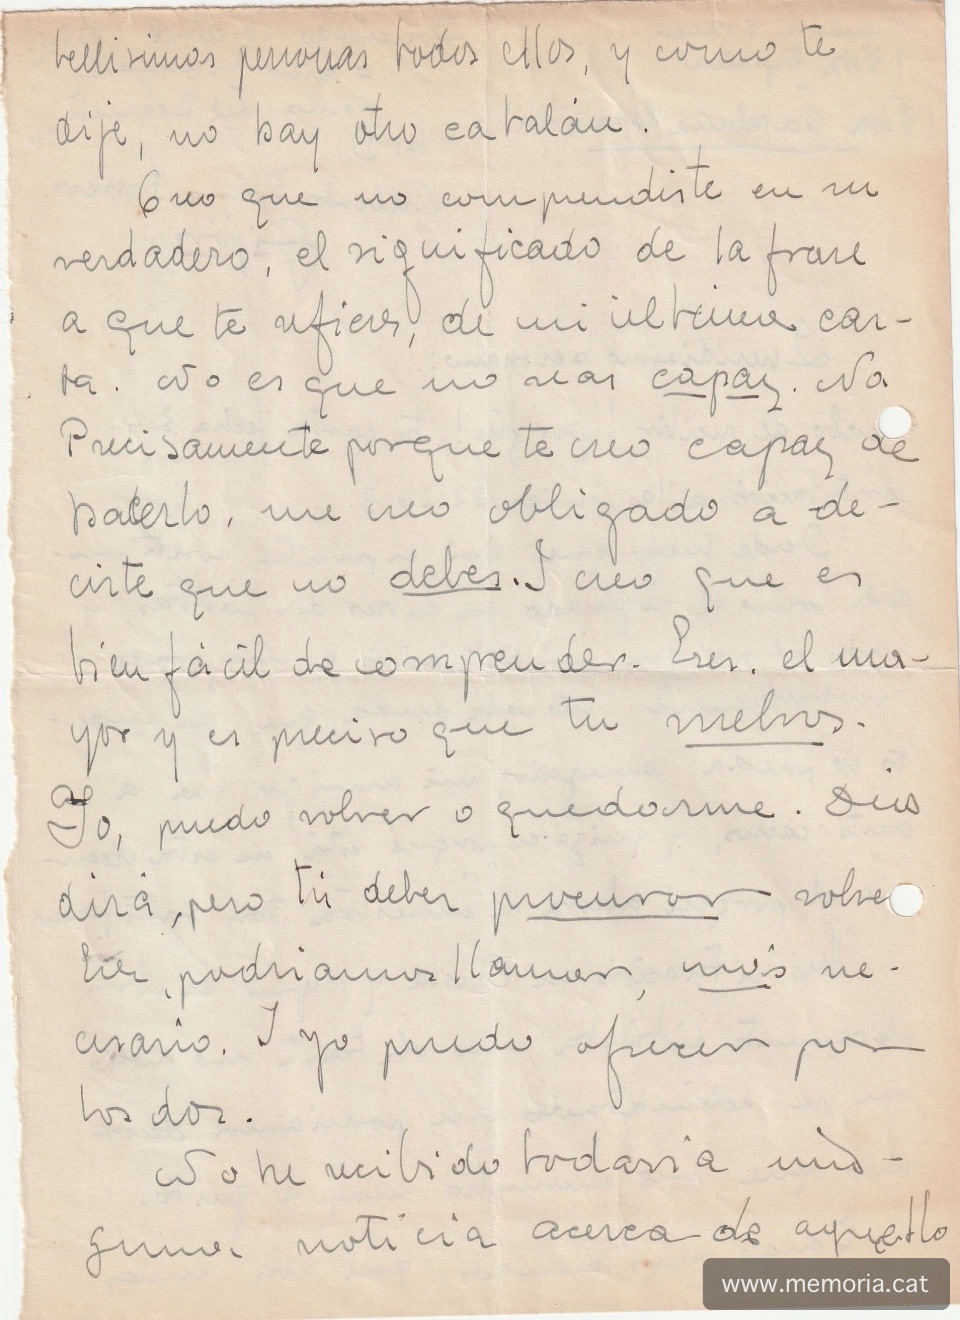 bellisimas personas todos ellos, y como te
dije, no hay otro catalán.
Creo que no comprendiste en su
verdadero, el significado de la frase
a que te refieres, de mi ultima car-
ta. No es que no seas capaz. No
Precisamente porque te creo capaz de
hacerlo, me creo obligado a de-
cirte que no debes. I creo que es
bien fácil de comprender. Eres, el ma-
yor y es preciso que tu vuelvas.
Yo, puedo volver o quedarme. Dios
dirá, pero tú debes procurar volver
Eres, podriamos llamar, más ne-
cesario. I yo puedo ofrecer por
los dos.
No he recibido todavia nin-
guna noticia acerca de aquello
www.memoria.cat